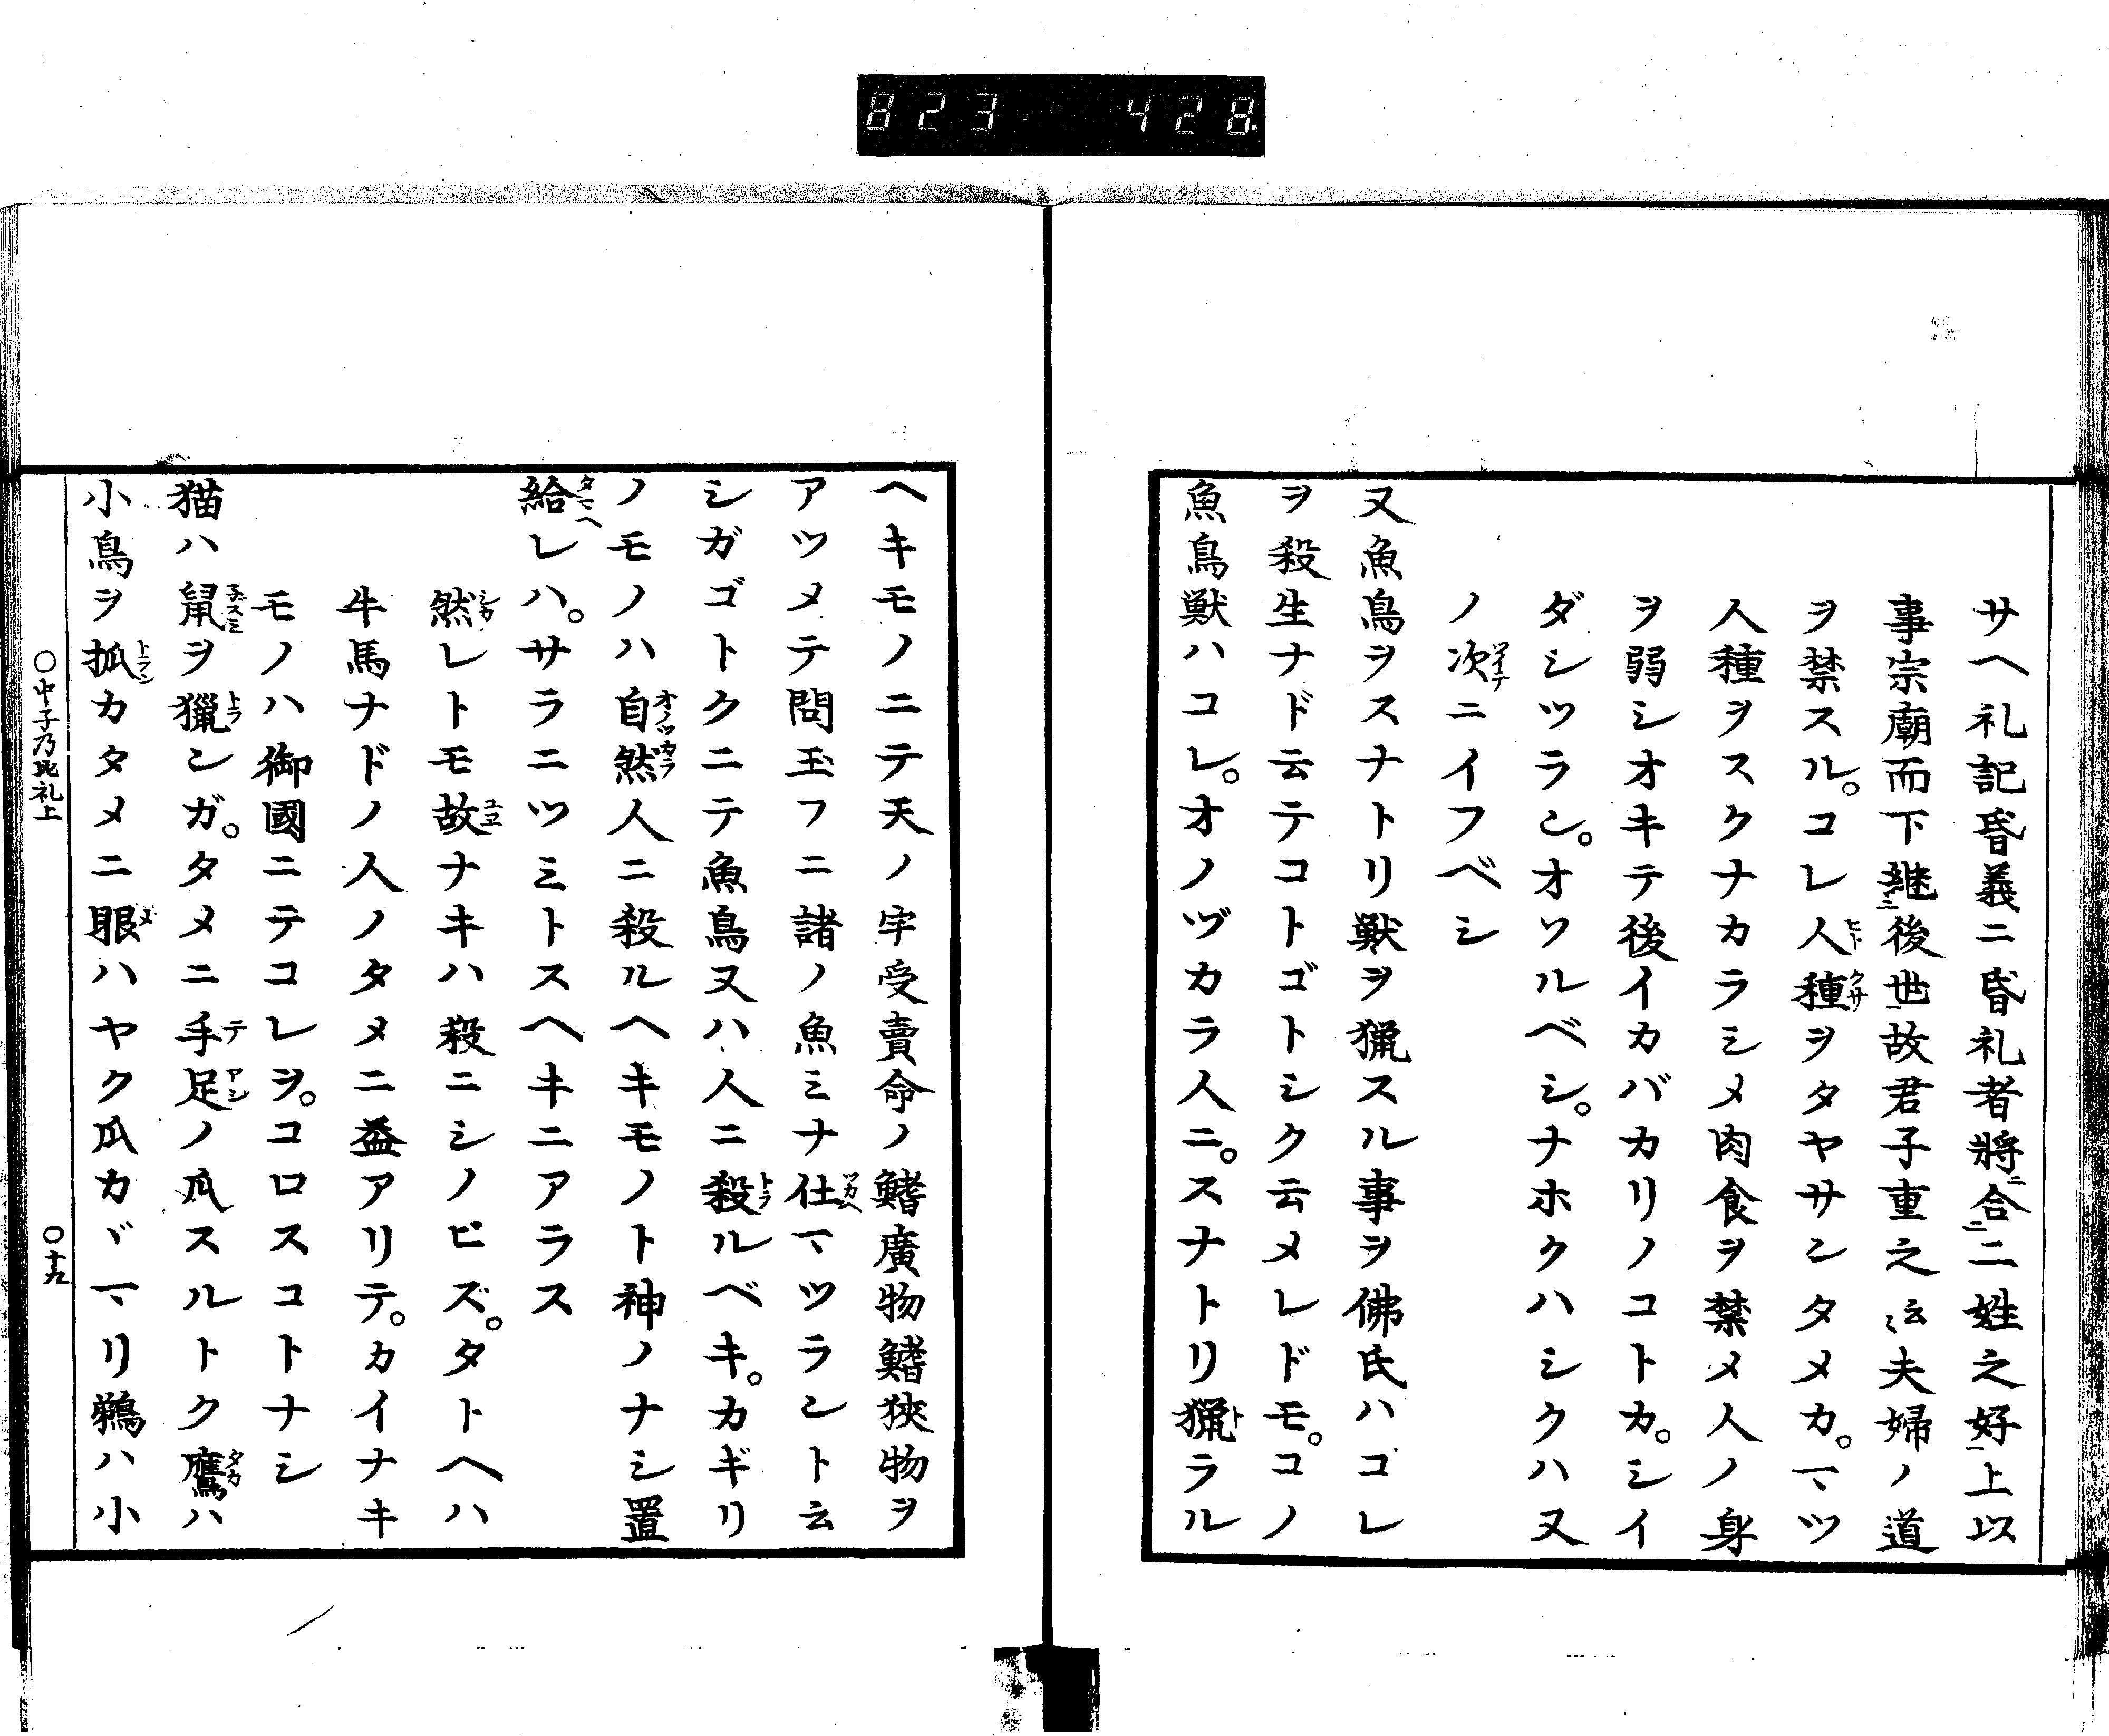 823 428
サヘ礼記昏義ニ昏礼者將合二姓之好上以
事宗廟而下継後世故君子重之云〻夫婦ノ道
ヲ禁スル。コレ人種ヲタヤサンタメカ。マヅツ
人種ヲスクナカラシメ肉食ヲ禁メ人ノ身
ヲ弱シオキテ後イカバカリノコトカ。シイ
ダシツラン。オソルベシ。ナホクハシクハ又
ノ次ニイフベシ
又魚鳥ヲスナトリ獣ヲ猟スル事ヲ佛氏ハコレ
ヲ殺生ナド云テコトゴトシク云メレドモ。コノ
魚鳥獣ハコレ。オノヅカラ人ニ。スナトリ猟ラル
ヘキモノニテ天ノ宇受賣命ノ鰭廣物鰭狹物ヲ
アツメテ問玉フニ諸ノ魚ミナ仕マツラント云
シガゴトクニテ魚鳥又ハ人ニ殺ルベキ。カギリ
ノモノハ自然人ニ殺ルヘキモノト神ノナシ置
給レハ。サラニツミトスヘキニアラス
然レトモ故ナキハ殺ニシノビズ。タトヘハ
牛馬ナドノ人ノタメニ益アリテ。カイナキ
モノハ御國ニテコレヲ。コロスコトナシ
猫ハ鼠ヲ獵ンガ。タメニ手足ノ爪スルトク鷹ハ
小鳥ヲ抓カタメニ眼ハヤク爪カヾマリ鵜ハ小
○中子乃比礼上 ○十九